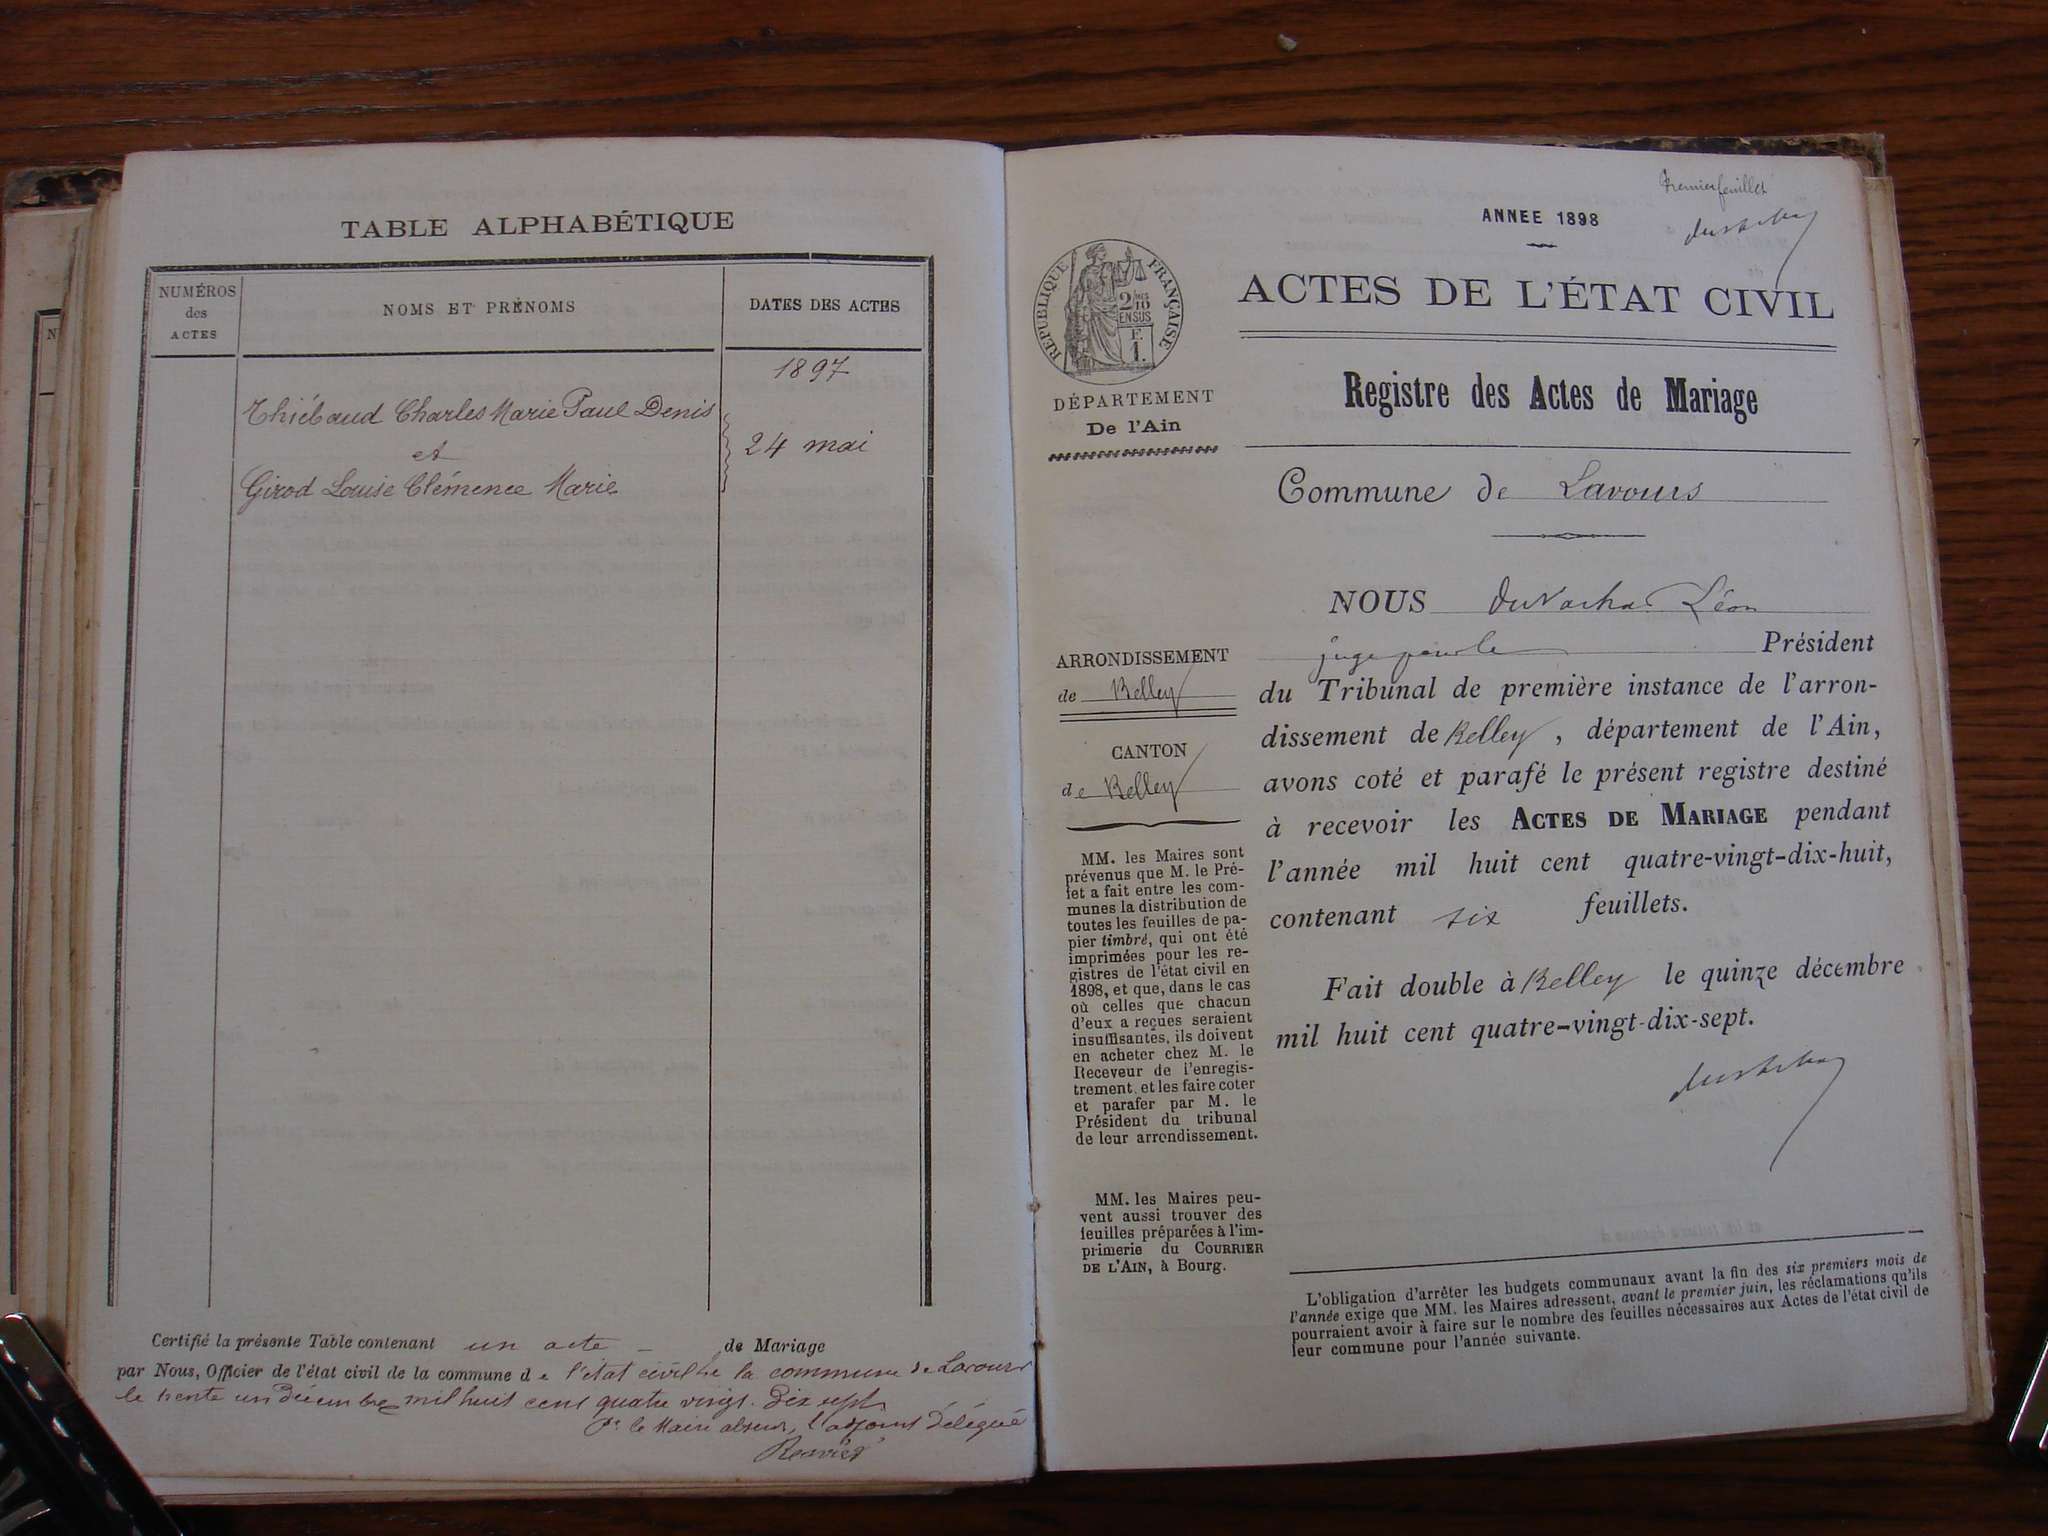 TABLE ALPHABÉTIQUE
NUMÉROS
des
ACTES
NOMS ET PRÉNOMS
DATES DES ACTES
1897
Thiébaud Charles Marie Paul Denis
et
24 mai
Girod Louise Clémence Marie
Certifié la présente Table contenant un acte de Mariage
par Nous, Officier de l'état civil de la commune de l'état civil de la commune de Lavours
le trente un Décembre mil huit cent quatre vingt. Dix sept
Pr le Maire absent, l'adjoint Délégué
Premier feuillet
ANNEE 1898
RÉPUBLIQUE FRANÇAISE
2/10
EN SUS
F.
1.
ACTES DE L'ÉTAT CIVIL
DÉPARTEMENT
De l'Ain
Registre des Actes de Mariage
Commune de Lavours
ARRONDISSEMENT
de Belley
CANTON
de Belley
MM. les Maires sont
prévenus que M. le Pré-
fet a fait entre les com-
munes la distribution de
toutes les feuilles de pa-
pier timbré, qui ont été
imprimées pour les re-
gistres de l'état civil en
1898, et que, dans le cas
où celles que chacun
d'eux a reçues seraient
insuffisantes, ils doivent
en acheter chez M. le
Receveur de l'enregis-
trement, et les faire coter
et parafer par M. le
Président du tribunal
de leur arrondissement.
MM. les Maires peu-
vent aussi trouver des
feuilles préparées à l'im-
primerie du COURRIER
DE L'AIN, à Bourg.
NOUS Léon
juge pour le Président
du Tribunal de première instance de l'arron-
dissement de Belley, département de l'Ain,
avons coté et parafé le présent registre destiné
à recevoir les ACTES DE MARIAGE pendant
l'année mil huit cent quatre-vingt-dix-huit,
contenant six feuillets.
Fait double à Belley le quinze décembre
mil huit cent quatre-vingt-dix-sept.
L'obligation d'arrêter les budgets communaux avant la fin des six premiers mois de
l'année exige que MM. les Maires adressent, avant le premier juin, les réclamations qu'ils
pourraient avoir à faire sur le nombre des feuilles nécessaires aux Actes de l'état civil de
leur commune pour l'année suivante.